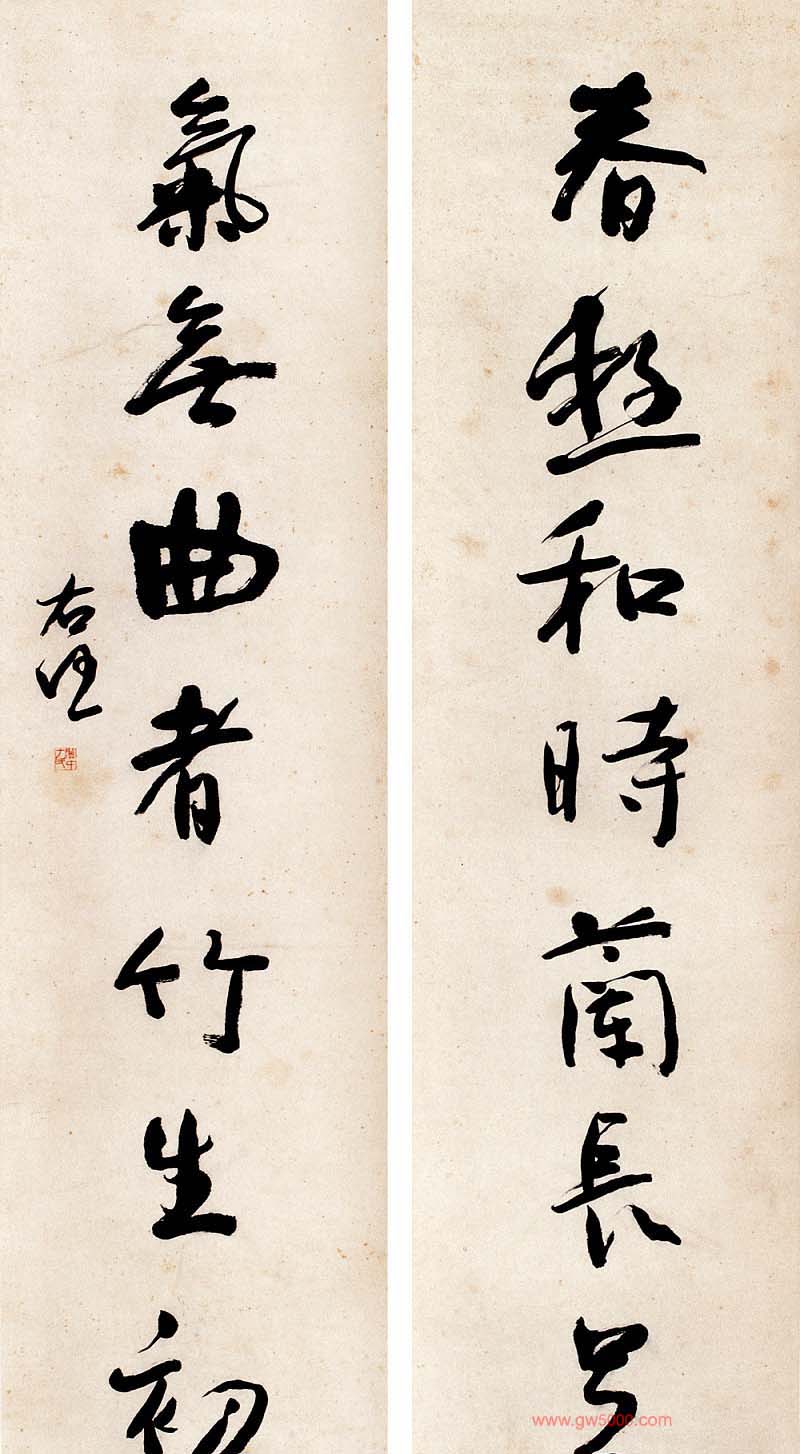 春和時蘭長
氣無曲者竹生初
右任
www.gw5000.com